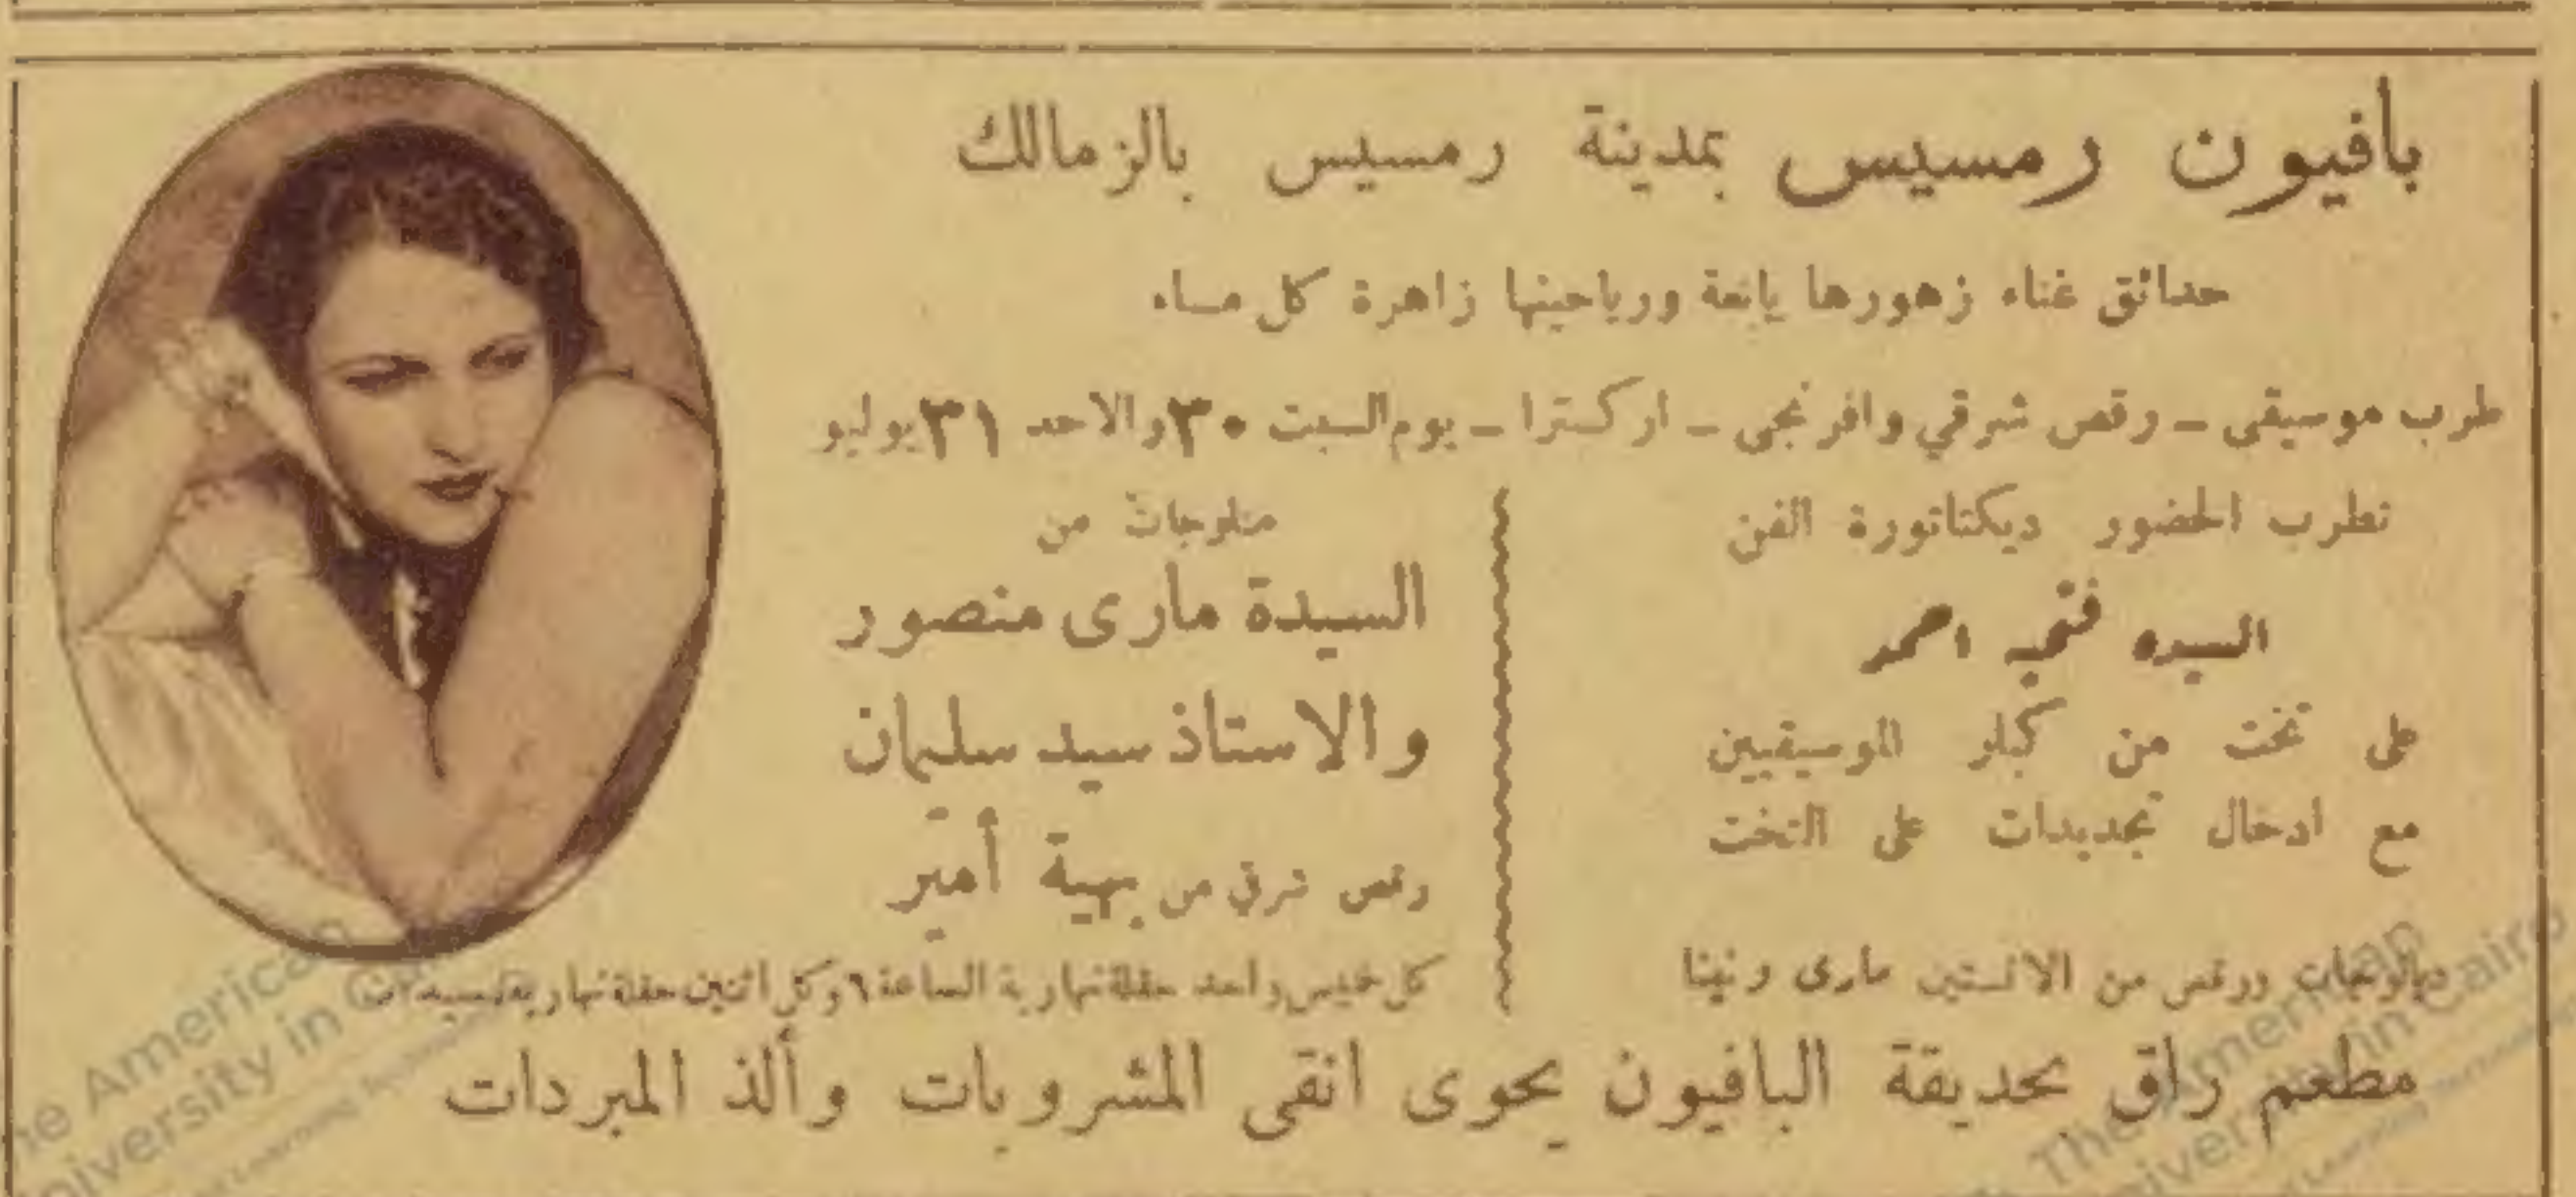 بافيون رمسيس بمدينة رمسيس بالزمالك
حدائق غناء زهورها يانعة ورياحينها زاهرة كل مساء
طرب موسيقى – رقص شرقي وافرنجى – اركسترا – يوم السبت ٣٠ والاحد ٣١ يوليو
تطرب الحضور ديكتاتورة الفن
السيده فتحيه احمد
على تخت من كبار الموسيقيين
مع ادخال تجديدات على التخت
ديالوجات ورقص من الانستين مارى ونينا
منلوجات من
السيدة مارى منصور
والاستاذ سيد سليمان
رقص شرقي من بهية أمير
كل خميس واحد حفلة نهارية الساعة ٦ وكل اثنين حفلة نهارية للسيدات
مطعم راق بحديقة البافيون يحوى انقى المشروبات وألذ المبردات
The American
University in Cairo
The American
University in Cairo